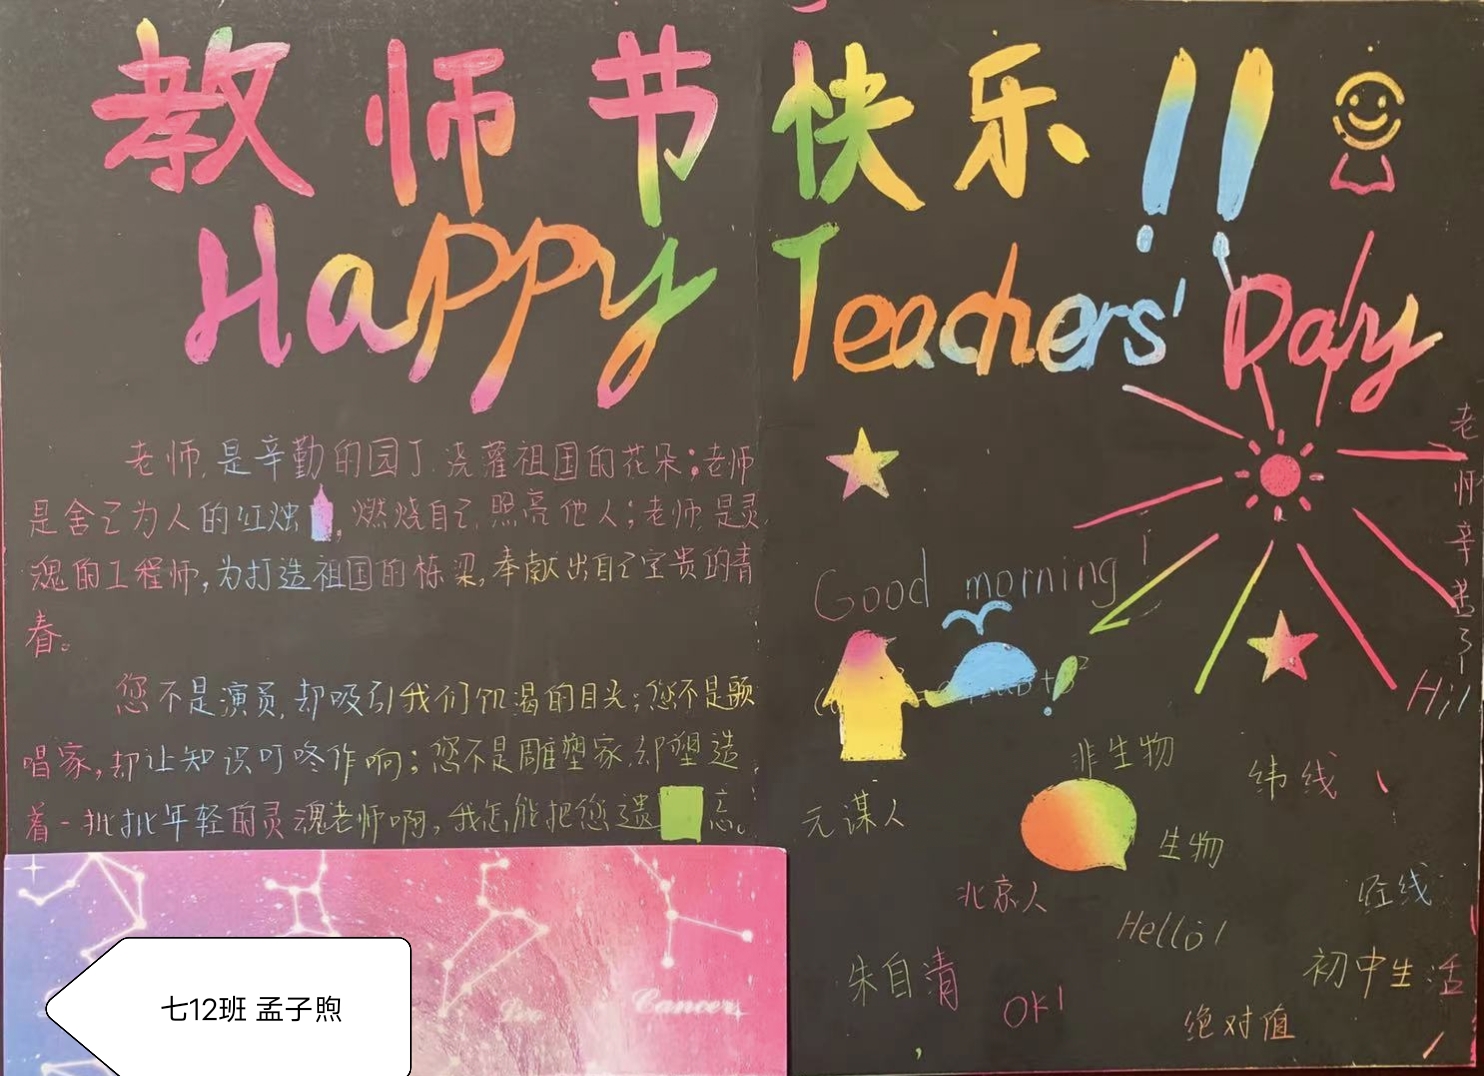 教师节快乐!!
Happy Teachers' Day
老师,是辛勤的园丁,浇灌祖国的花朵;老师
是舍己为人的红烛,燃烧自己,照亮他人;老师,是灵
魂的工程师,为打造祖国的栋梁,奉献出自己宝贵的青
春。
您不是演员,却吸引我们饥渴的目光;您不是歌
唱家,却让知识叮咚作响;您不是雕塑家,却塑造
着一批批年轻的灵魂老师啊,我怎能把您遗忘。
老师辛苦了
Good morning!
Hi!
非生物
纬线
元谋人
生物
北京人
经线
Hello!
初中生活
朱自清
OK!
绝对值
Leo
Cancer
七12班 孟子煦